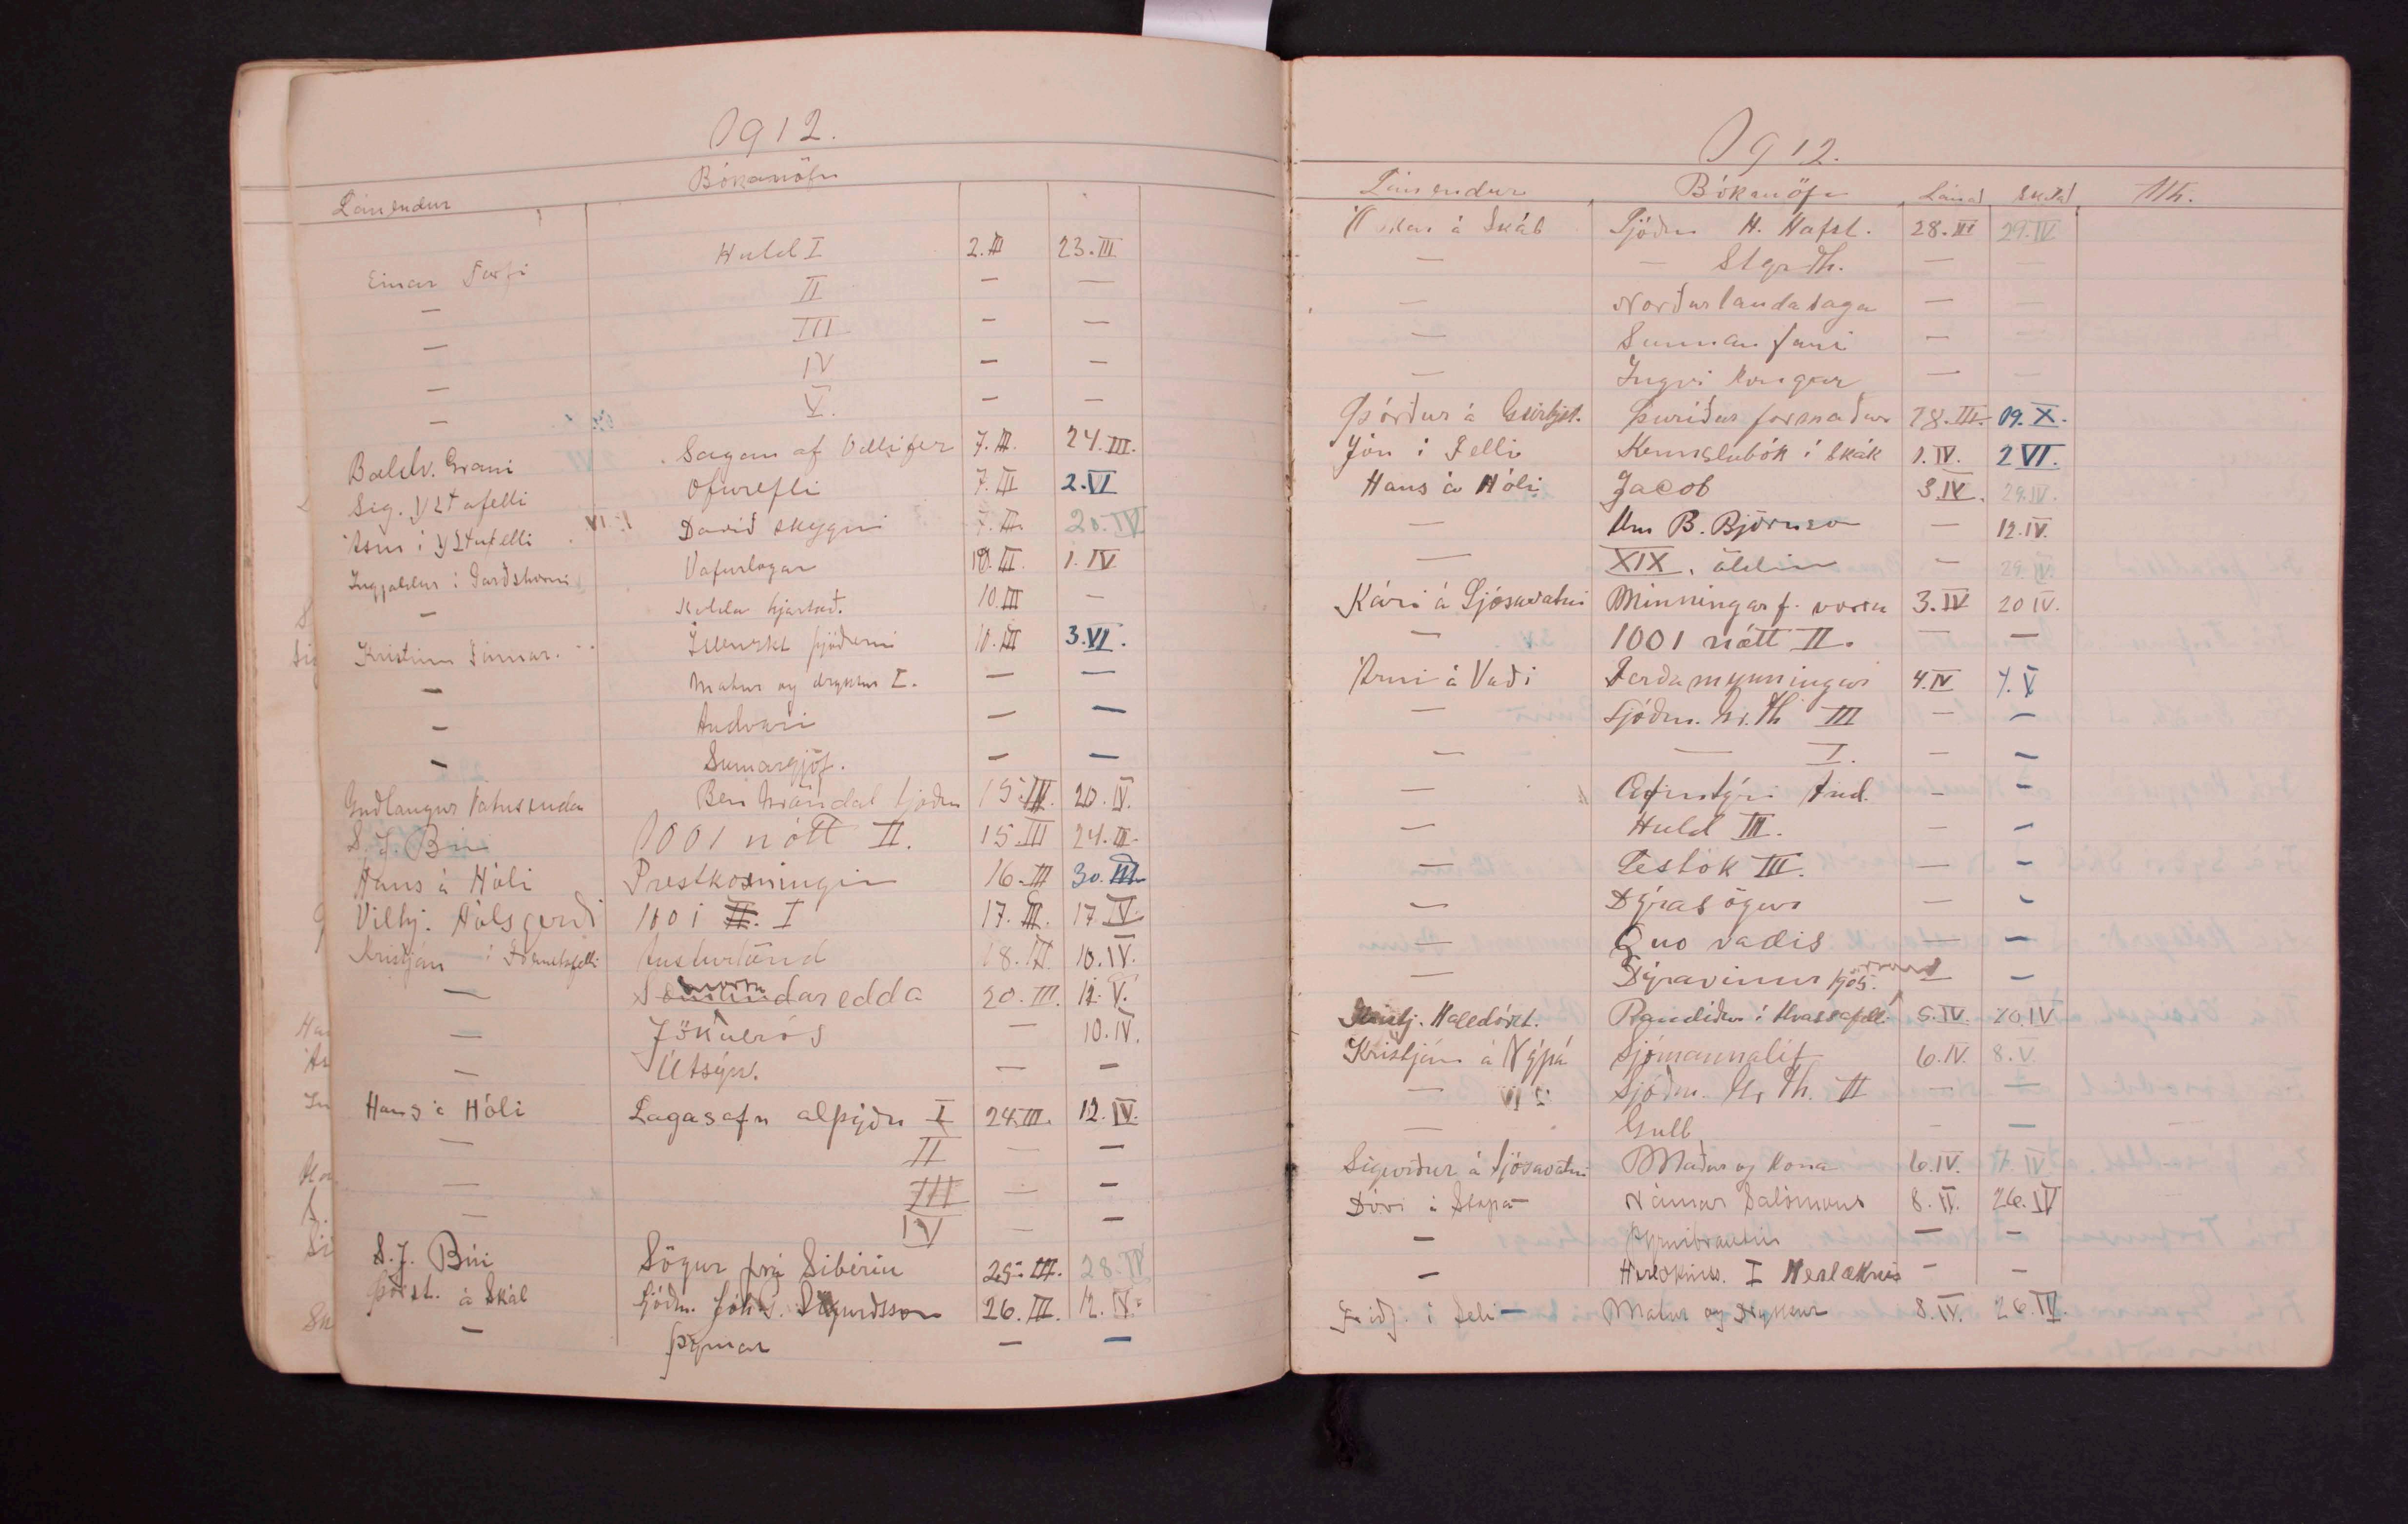 1912.
Lánendur Bókanöfn
Einar Torfi Huld I 2.III 23.III
— II — —
— III — —
— IV — —
— V. — —
Baldv. Grani Sagan af Öllifer 7.III. 24.III.
Sig. Yztafelli Ofurefli 7.III 2.VI
Ásm í Yztafelli Davíð skygni 7.III. 20.IV
Ingjaldur í Garðshorni Vafurlogar 10.III. 1.IV
— Kalda hjartað. 10.III —
Kristinn Einar. Íslenzkt þjóðerni 10.III 3.VI.
— Matur og drykkur I. — —
— Andvari — —
— Sumargjöf. — —
Guðlaugur Vatnsenda Ben Gröndal ljóðm 15.III. 20.IV.
S. J. Búi 1001 nótt II. 15.III 24.III.
Hans á Hóli Prestkosningin 16.III 30.III
Vilhj. Hálsgerði 1001 II. I 17.III. 17.IV.
Kristján í Fremstafelli Austurlönd 18.III. 10.IV.
— Snorra edda 20.III. 12.V.
— Jökulrós — 10.IV.
— Útsýn. — —
Hans á Hóli Lagasafn alþýðu I 24.III. 12.IV.
— II — —
— III — —
— IV — —
S. J. Búi Sögur frá Síberíu 25.III. 28.IV
Þorst. á Skál Ljóðm. Jóh. G. Sigurðsson 26.III. 12.IV.
— Þyrnar — —
1912.
Lánendur Bókanöfn Lánað Skilað Ath.
á Skál Ljóðm H. Hafst. 28.III 29.IV
— — Stgr. Th. — —
— Norðurlandasaga — —
— Sunnanfari — —
— Ingvi konungur — —
Þórður á Þuríður formaður 28.III. 19.X.
Jón í Felli Kennslubók í skák 1.IV. 2 VI.
Hans á Hóli Jacob 3.IV. 29.IV.
— Um B. Björnson — 12.IV.
— XIX. öldin — 29.IV
Kári á Ljósavatni Minningar f. vorra 3.IV 20 IV.
— 1001 nótt II. — —
Árni á Vaði Ferðaminningar 4.IV 7.V
— Ljóðm. Gr. Th III — —
— — I. — —
— Æfintýri And. — —
— Huld III. — —
— Lesbók III. — —
— Dýrasögur — —
— Quo vadis — —
— Dýravinur 1905. — —
Kristj. Halldórst. Randíður í Hvassafelli 5.IV. 20.IV
Kristján á Nýpá Sjómannalíf 6.IV. 8.V.
— Ljóðm. Gr. Th. II — —
— Gull — —
Sigurður á Ljósavatni Maður og kona 6.IV. 17.IV.
Dóri í Stapa Námar Salómons 8.IV. 26.IV
— Þyrnibrautin — —
— I Herlæknis — —
Friðj. í Seli Matur og drykkur 8.IV. 26.IV.